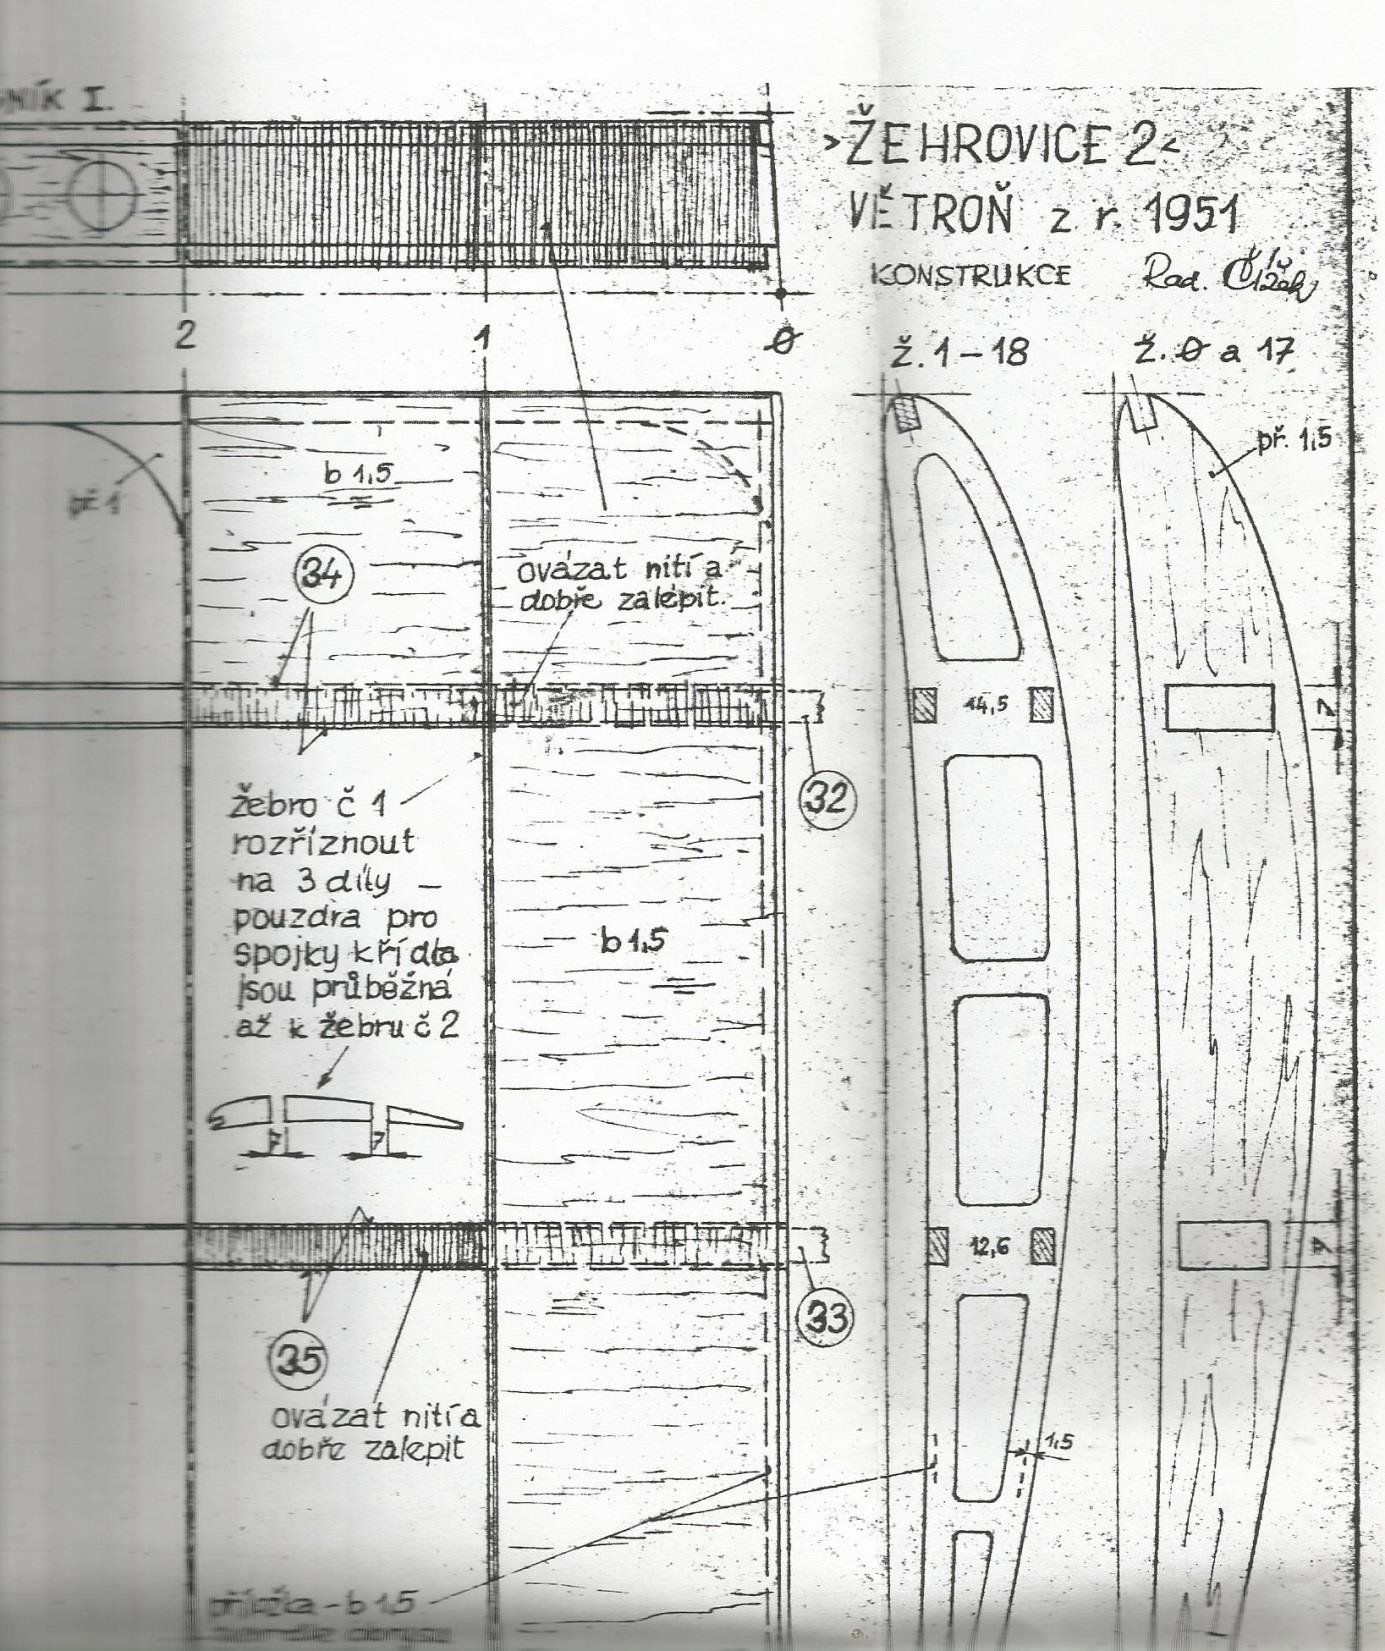 NÍK I.
>ŽEHROVICE 2<
VĚTROŇ z r. 1951
KONSTRUKCE Rad. Čížek
2
1
0
ž. 1-18
ž. 0 a 17
př. 1,5
b 1,5
př. 1
34
ovázat nití a
dobře zalepit.
14,5
7
32
žebro č 1
rozříznout
na 3 díly –
pouzdra pro
spojky křídla
jsou průběžná
až k žebru č 2
b 1,5
7
7
12,6
7
33
35
ovázat nití a
dobře zalepit
1,5
příložka - b 1,5